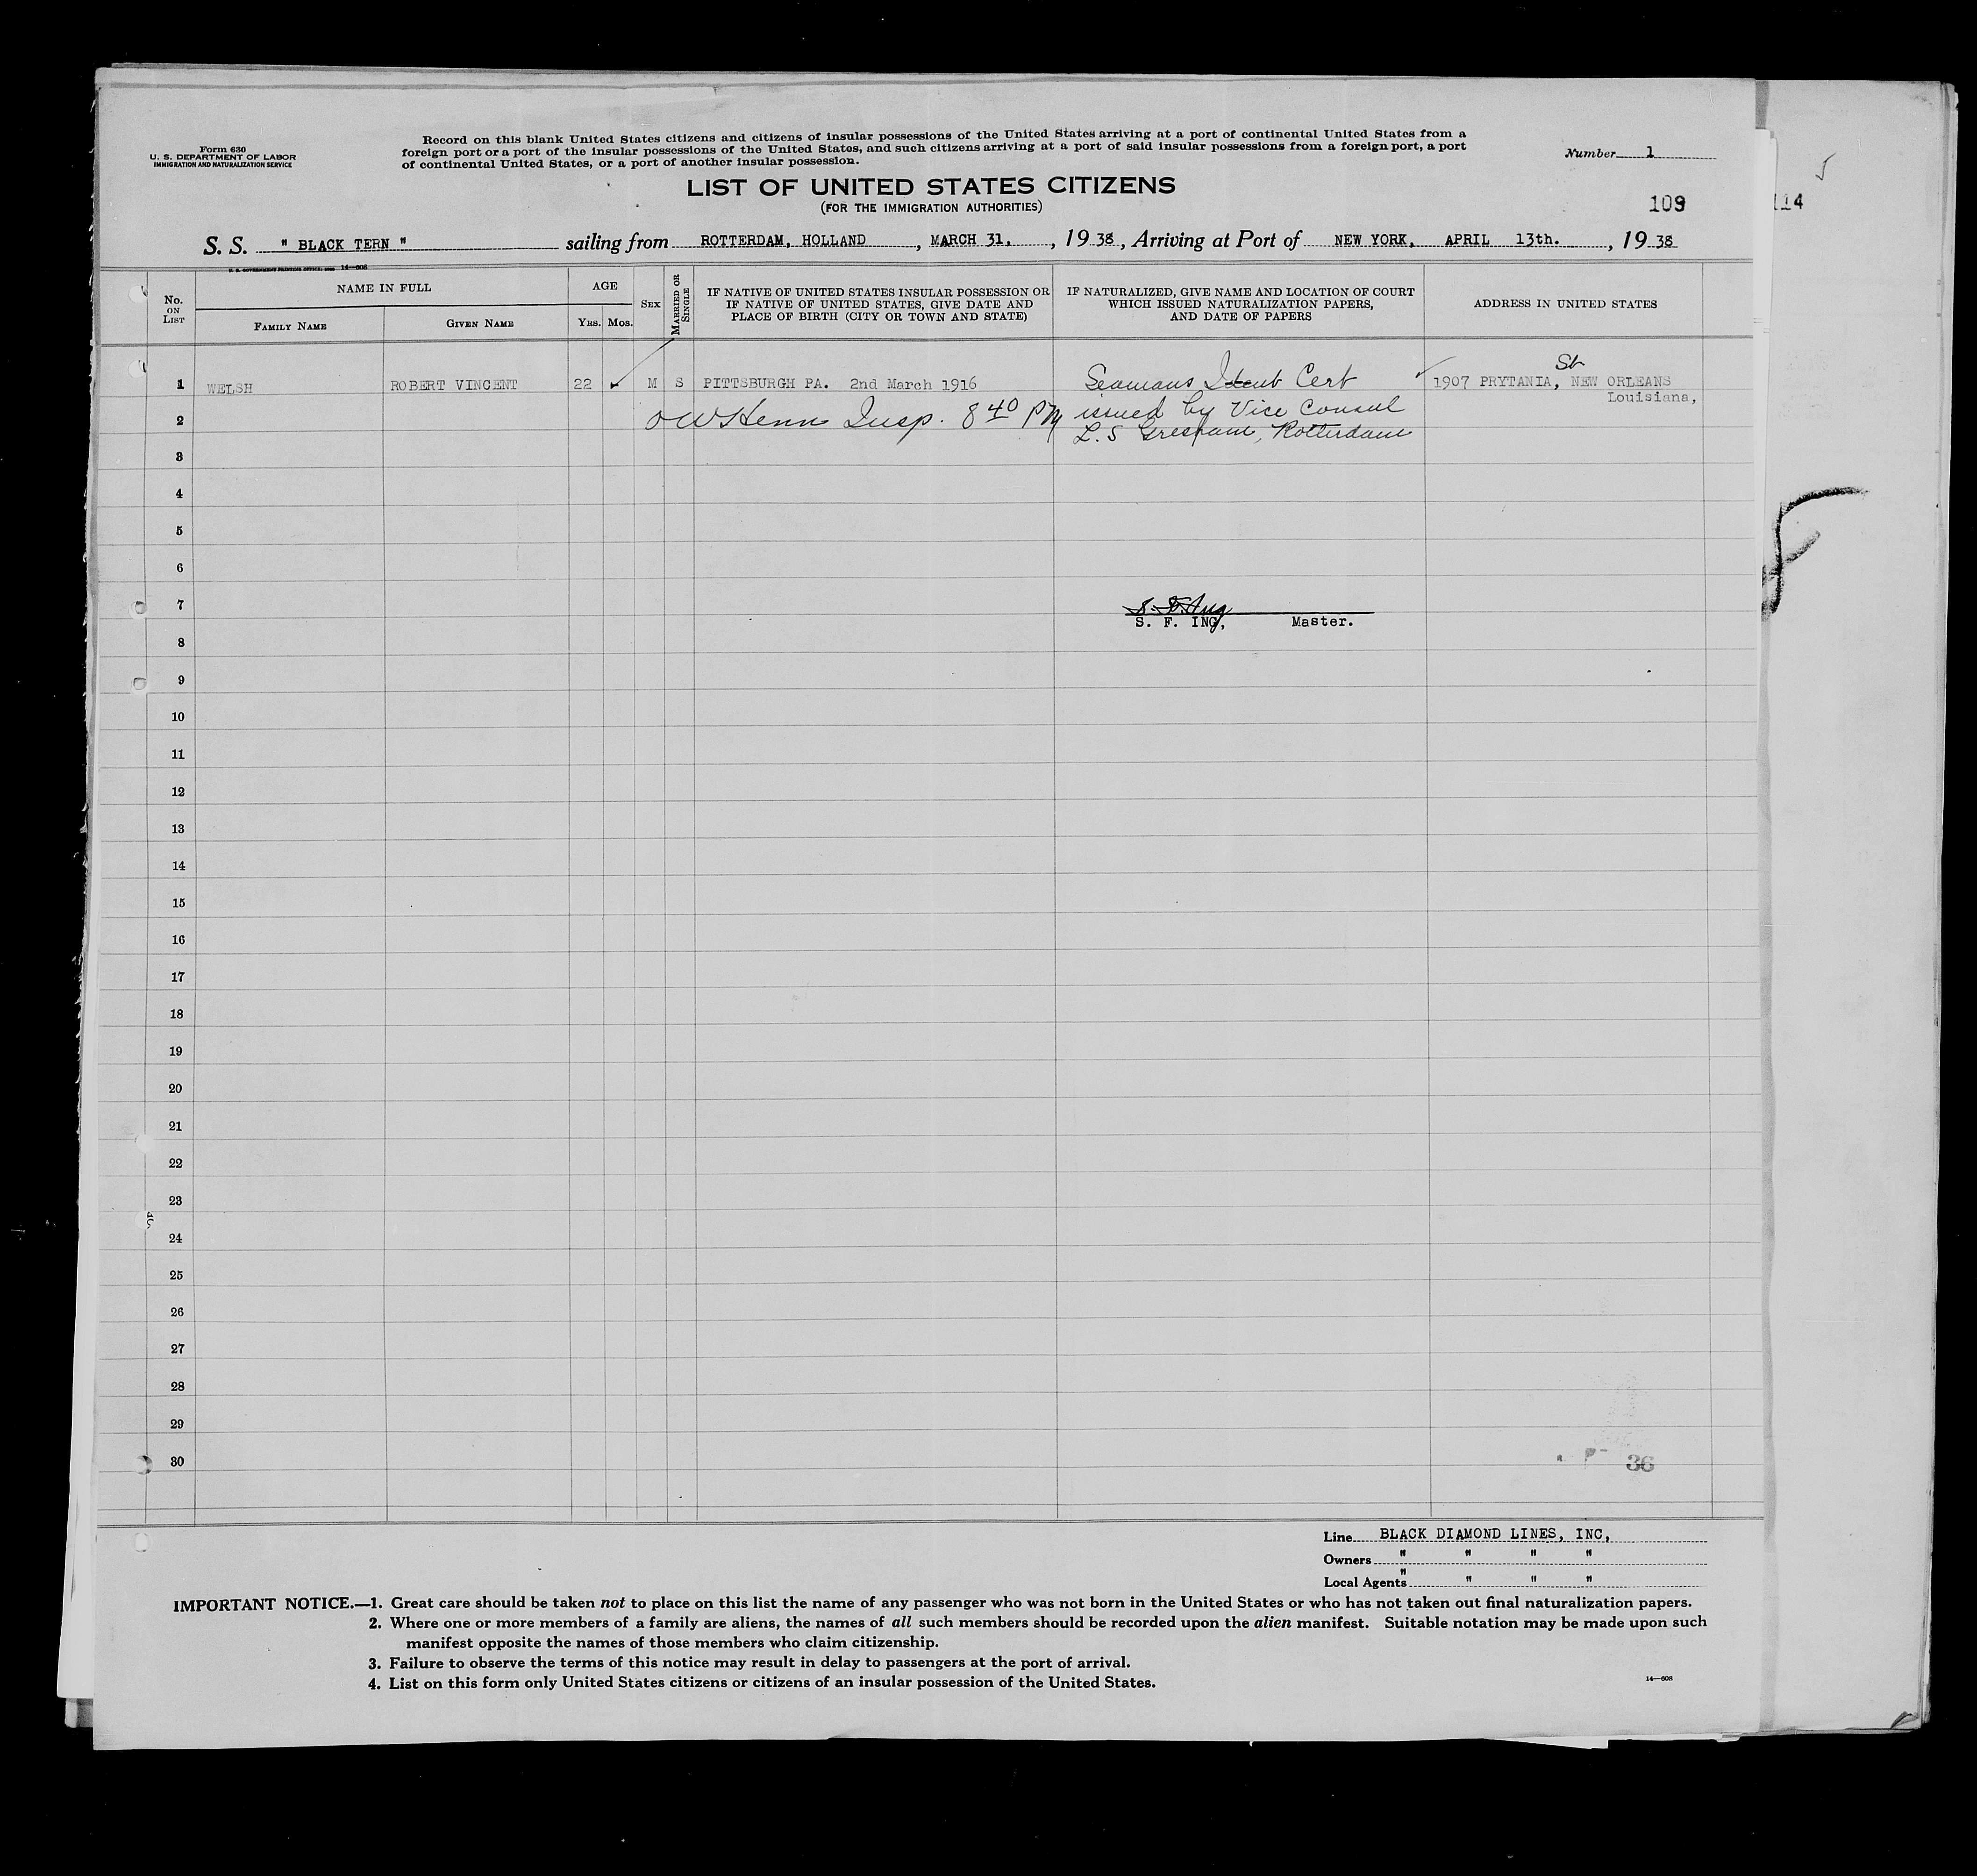 Form 630
U. S. DEPARTMENT OF LABOR
IMMIGRATION AND NATURALIZATION SERVICE
Record on this blank United States citizens and citizens of insular possessions of the United States arriving at a port of continental United States from a
foreign port or a port of the insular possessions of the United States, and such citizens arriving at a port of said insular possessions from a foreign port, a port
of continental United States, or a port of another insular possession.
Number 1
LIST OF UNITED STATES CITIZENS
(FOR THE IMMIGRATION AUTHORITIES)
109
114
S. S. " BLACK TERN " sailing from ROTTERDAM, HOLLAND , MARCH 31, , 19 38 , Arriving at Port of NEW YORK, APRIL 13th. , 19 38
No. ON LIST
NAME IN FULL
FAMILY NAME
GIVEN NAME
AGE
YRS. MOS.
SEX
MARRIED OR SINGLE
IF NATIVE OF UNITED STATES INSULAR POSSESSION OR
IF NATIVE OF UNITED STATES, GIVE DATE AND
PLACE OF BIRTH (CITY OR TOWN AND STATE)
IF NATURALIZED, GIVE NAME AND LOCATION OF COURT
WHICH ISSUED NATURALIZATION PAPERS,
AND DATE OF PAPERS
ADDRESS IN UNITED STATES
1 WELSH ROBERT VINCENT 22 M S PITTSBURGH PA. 2nd March 1916 Seamans Ident Cert 1907 PRYTANIA, St NEW ORLEANS
Louisiana,
2 OW Henn Insp. 8 40 PM issued by Vice Consul
L. S Gresham, Rotterdam
3
4
5
6
7
S. F. ING, Master.
8
9
10
11
12
13
14
15
16
17
18
19
20
21
22
23
24
25
26
27
28
29
30
36
Line BLACK DIAMOND LINES, INC,
Owners " " " "
Local Agents " " " "
IMPORTANT NOTICE.—1. Great care should be taken not to place on this list the name of any passenger who was not born in the United States or who has not taken out final naturalization papers.
2. Where one or more members of a family are aliens, the names of all such members should be recorded upon the alien manifest. Suitable notation may be made upon such
manifest opposite the names of those members who claim citizenship.
3. Failure to observe the terms of this notice may result in delay to passengers at the port of arrival.
4. List on this form only United States citizens or citizens of an insular possession of the United States.
14—608